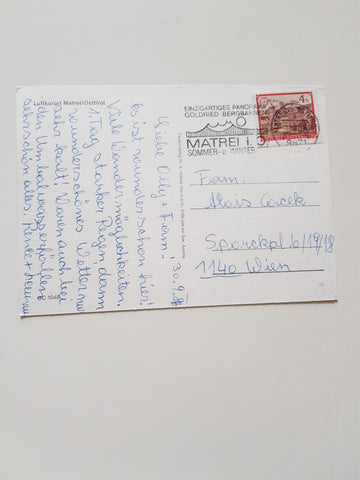 Luftkurort Matrei/Osttirol
EINZIGARTIGES PANORAMA
GOLDRIED BERGBAHNEN
MATREI i. O.
SOMMER- u. WINTER
4
Liebe Oily + Fam.!
30.9.86
Es ist wunderschön hier!
Viele Wandermöglichkeiten.
1. Tag starker Regen, dann
wunderschönes Wetter nur
sehr kalt! Waren auch bei
den Umbalwasserfällen
sehr schön alles. Renate +
Fam.
Alois Cacek
Sporckpl. 6/19/18
1140 Wien